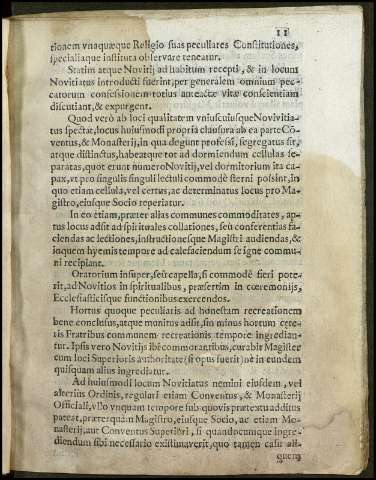 11
tionem vnaquæque Religio suas peculiares Constitutiones,
specialiaque instituta observare teneatur.
Statim atque Novitij ad habitum recepti, & in locum
Novitiatus introducti fuerint, per generalem omnium pec-
catorum confessionem totius anteactæ vitæ conscientiam
discutiant, & expurgent.
Quod verò ab loci qualitatem vniuscuiusque Novivitia-
tus spectat, locus huiusmodi propria clausura ab ea parte Cō-
ventus, & Monasterij, in qua degunt professi, segregatus sit,
atque distinctus, habeatque tot ad dormiendum cellulas se-
paratas, quot erunt numero Novitij, vel dormitorium ita ca-
pax, vt pro singulis singuli lectuli commodè sterni possint, in
quo etiam cellula, vel certus, ac determinatus locus pro Ma-
gistro, eiusque Socio reperiatur.
In eo etiam, præter alias communes commoditates, ap-
tus locus adsit ad spirituales collationes, seu conferentias fa-
ciendas ac lectiones, instructionesque Magistri audiendas, &
in quem hyemis tempore ad calefaciendum se igne commu-
ni recipiant.
Oratorium insuper, seu capella, si commodè fieri pote-
rit, ad Novitios in spiritualibus, præsertim in cœremonijs,
Ecclesiasticisque functionibus exercendos.
Hortus quoque peculiaris ad honestam recreationem
bene conclusus, atque munitus adsit, sin minus hortum cæte-
ris Fratribus communem recreationis tempore ingredian-
tur. Ipsis vero Novitijs ibi commorantibus, curabit Magister
cum loci Superioris authoritate (si opus fuerit) nè in eundem
quisquam alius ingrediatur.
Ad huiusmodi locum Novitiatus nemini eiusdem, vel
alterius Ordinis, regulari etiam Conventus, & Monasterij
Officiali, vllo vnquam tempore sub quovis prætextu aditus
pateat, præterquàm Magistro, eiusque Socio, ac etiam Mo-
nasterij, aut Conventus Superiori, si quandocunque ingre-
diendum sibi necessario existimaverit, quo tamen casu ali-
quem